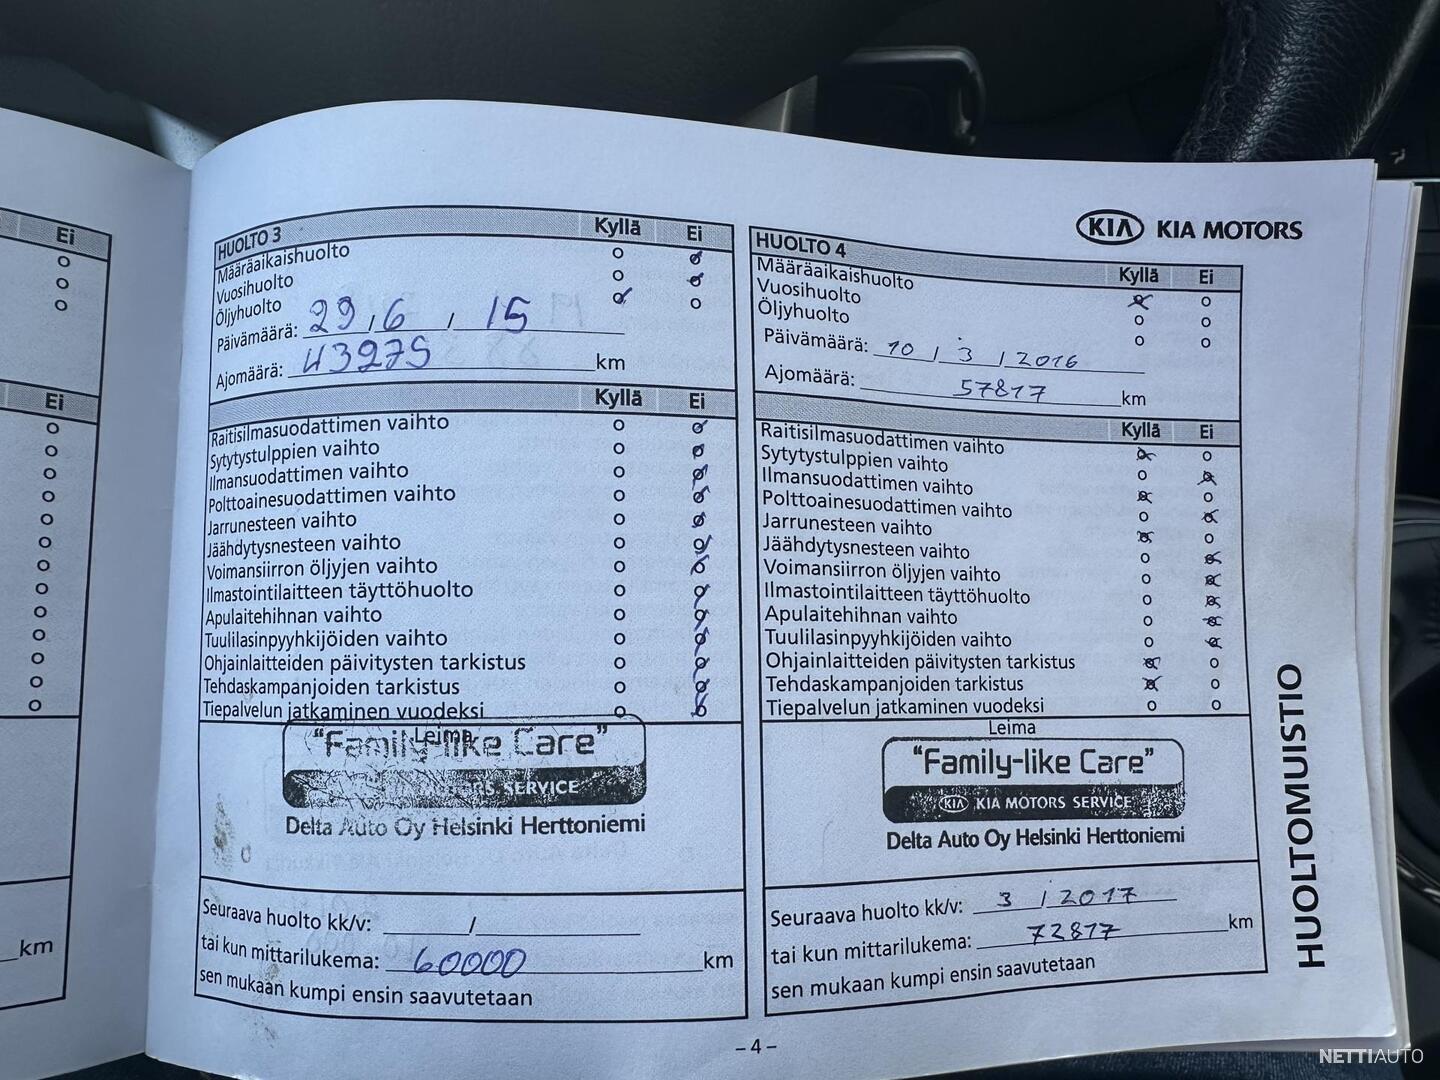 Ei
Ei
km
HUOLTO 3 Kyllä Ei
Määräaikaishuolto o o
Vuosihuolto o o
Öljyhuolto o o
Päivämäärä: 29 / 6 / 15
Ajomäärä: 43275 km
Kyllä Ei
Raitisilmasuodattimen vaihto o o
Sytytystulppien vaihto o o
Ilmansuodattimen vaihto o o
Polttoainesuodattimen vaihto o o
Jarrunesteen vaihto o o
Jäähdytysnesteen vaihto o o
Voimansiirron öljyjen vaihto o o
Ilmastointilaitteen täyttöhuolto o o
Apulaitehihnan vaihto o o
Tuulilasinpyyhkijöiden vaihto o o
Ohjainlaitteiden päivitysten tarkistus o o
Tehdaskampanjoiden tarkistus o o
Tiepalvelun jatkaminen vuodeksi o o
Leima
"Family-like Care"
MOTORS SERVICE
Delta Auto Oy Helsinki Herttoniemi
Seuraava huolto kk/v: /
tai kun mittarilukema: 60000 km
sen mukaan kumpi ensin saavutetaan
KIA KIA MOTORS
HUOLTO 4 Kyllä Ei
Määräaikaishuolto o o
Vuosihuolto o o
Öljyhuolto o o
Päivämäärä: 10 / 3 / 2016
Ajomäärä: 57817 km
Kyllä Ei
Raitisilmasuodattimen vaihto o o
Sytytystulppien vaihto o o
Ilmansuodattimen vaihto o o
Polttoainesuodattimen vaihto o o
Jarrunesteen vaihto o o
Jäähdytysnesteen vaihto o o
Voimansiirron öljyjen vaihto o o
Ilmastointilaitteen täyttöhuolto o o
Apulaitehihnan vaihto o o
Tuulilasinpyyhkijöiden vaihto o o
Ohjainlaitteiden päivitysten tarkistus o o
Tehdaskampanjoiden tarkistus o o
Tiepalvelun jatkaminen vuodeksi o o
Leima
"Family-like Care"
KIA KIA MOTORS SERVICE
Delta Auto Oy Helsinki Herttoniemi
Seuraava huolto kk/v: 3 / 2017
tai kun mittarilukema: 72817 km
sen mukaan kumpi ensin saavutetaan
HUOLTOMUISTIO
– 4 –
NETTIAUTO